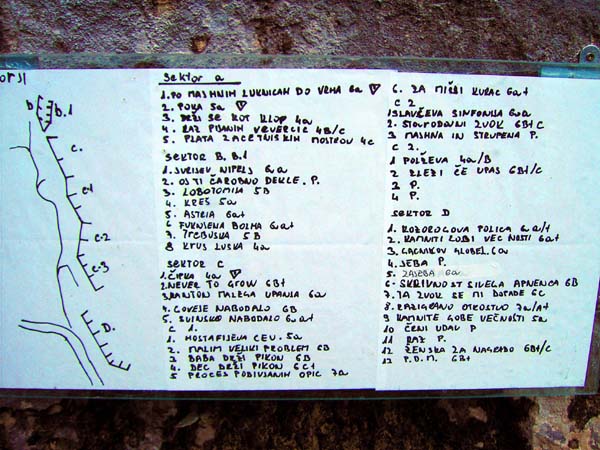 orji
B
B.1
C.
C1
C-2
C-3
D.
Sektor a
1. PO MASHNIH LUKNICAH DO VRHA 6a
2. POKA 5a
3. DRŽI SE KOT KLOP 4a
4. RAZ PIJANIH VEVERCIC 4B/C
5. PLATA ZACETNISKIH MOSTROV 4c
SEKTOR B, B.1
1. SVRISEV NIPELJ 6a
2. OSTI ČAROBNO DEKLE. P.
3. LOBOTOMIJA 5B
4. KREŠ 5a
5. ASTRIA 6a+
6 FUKNJENA BOLHA 6a+
7. TREBUSKA 5B
8 KRUS LUSKA 4a
SEKTOR C
1. ČIPKA 4a
2. NEVER TO GROW 6B+
3. KANTON MALEGA UPANJA 6a
4. GOVEJE NABODALO 6B
5. SVINSKO NABODALO 6a+
C 1.
1. MOSTAFIJEVA CEV. 5a
2. MALIM VELIKI PROBLEM 6B
3 BABA DRŽI PIKON 6B
4. DEC DRŽI PIKON 6C+
5 PROCES PODIVJANIH OPIC 7a
6. ZA MIŠJI KURAC 6a+
C 2
1 SLAVČEVA SINFONIJA 6a
2. STARODAVNI ZVOK 6B+C
3 MASHNA IN STRUPENA P.
C 2.
1 POLŽEVA 4a/B
2 BLEŽI ČE UPAS 6B+/C
3 P.
4 P.
SEKTOR D
1. KOZOROGOVA POLICA 6a/+
2. KAMNITI LOBI VEČNOSTI 6a+
3. GACNIKOV GLOBEL. 6a
4. JEBA P.
5. ZAJEBA 6a
6. SKRIVNOST SIVEGA APNENCA 6B
7. TA ZVOK SE MI DOPADE 6C
8. RAZIGRANO OTROSTVO 7a/A+
9 KAMNITE GOBE VEČNOSTI 5a
10 ČRNI UDAV P
11 RAZ P.
12 ŽENSKA ZA NAGRADO 6B+/C
13 P.D.M. 6B+